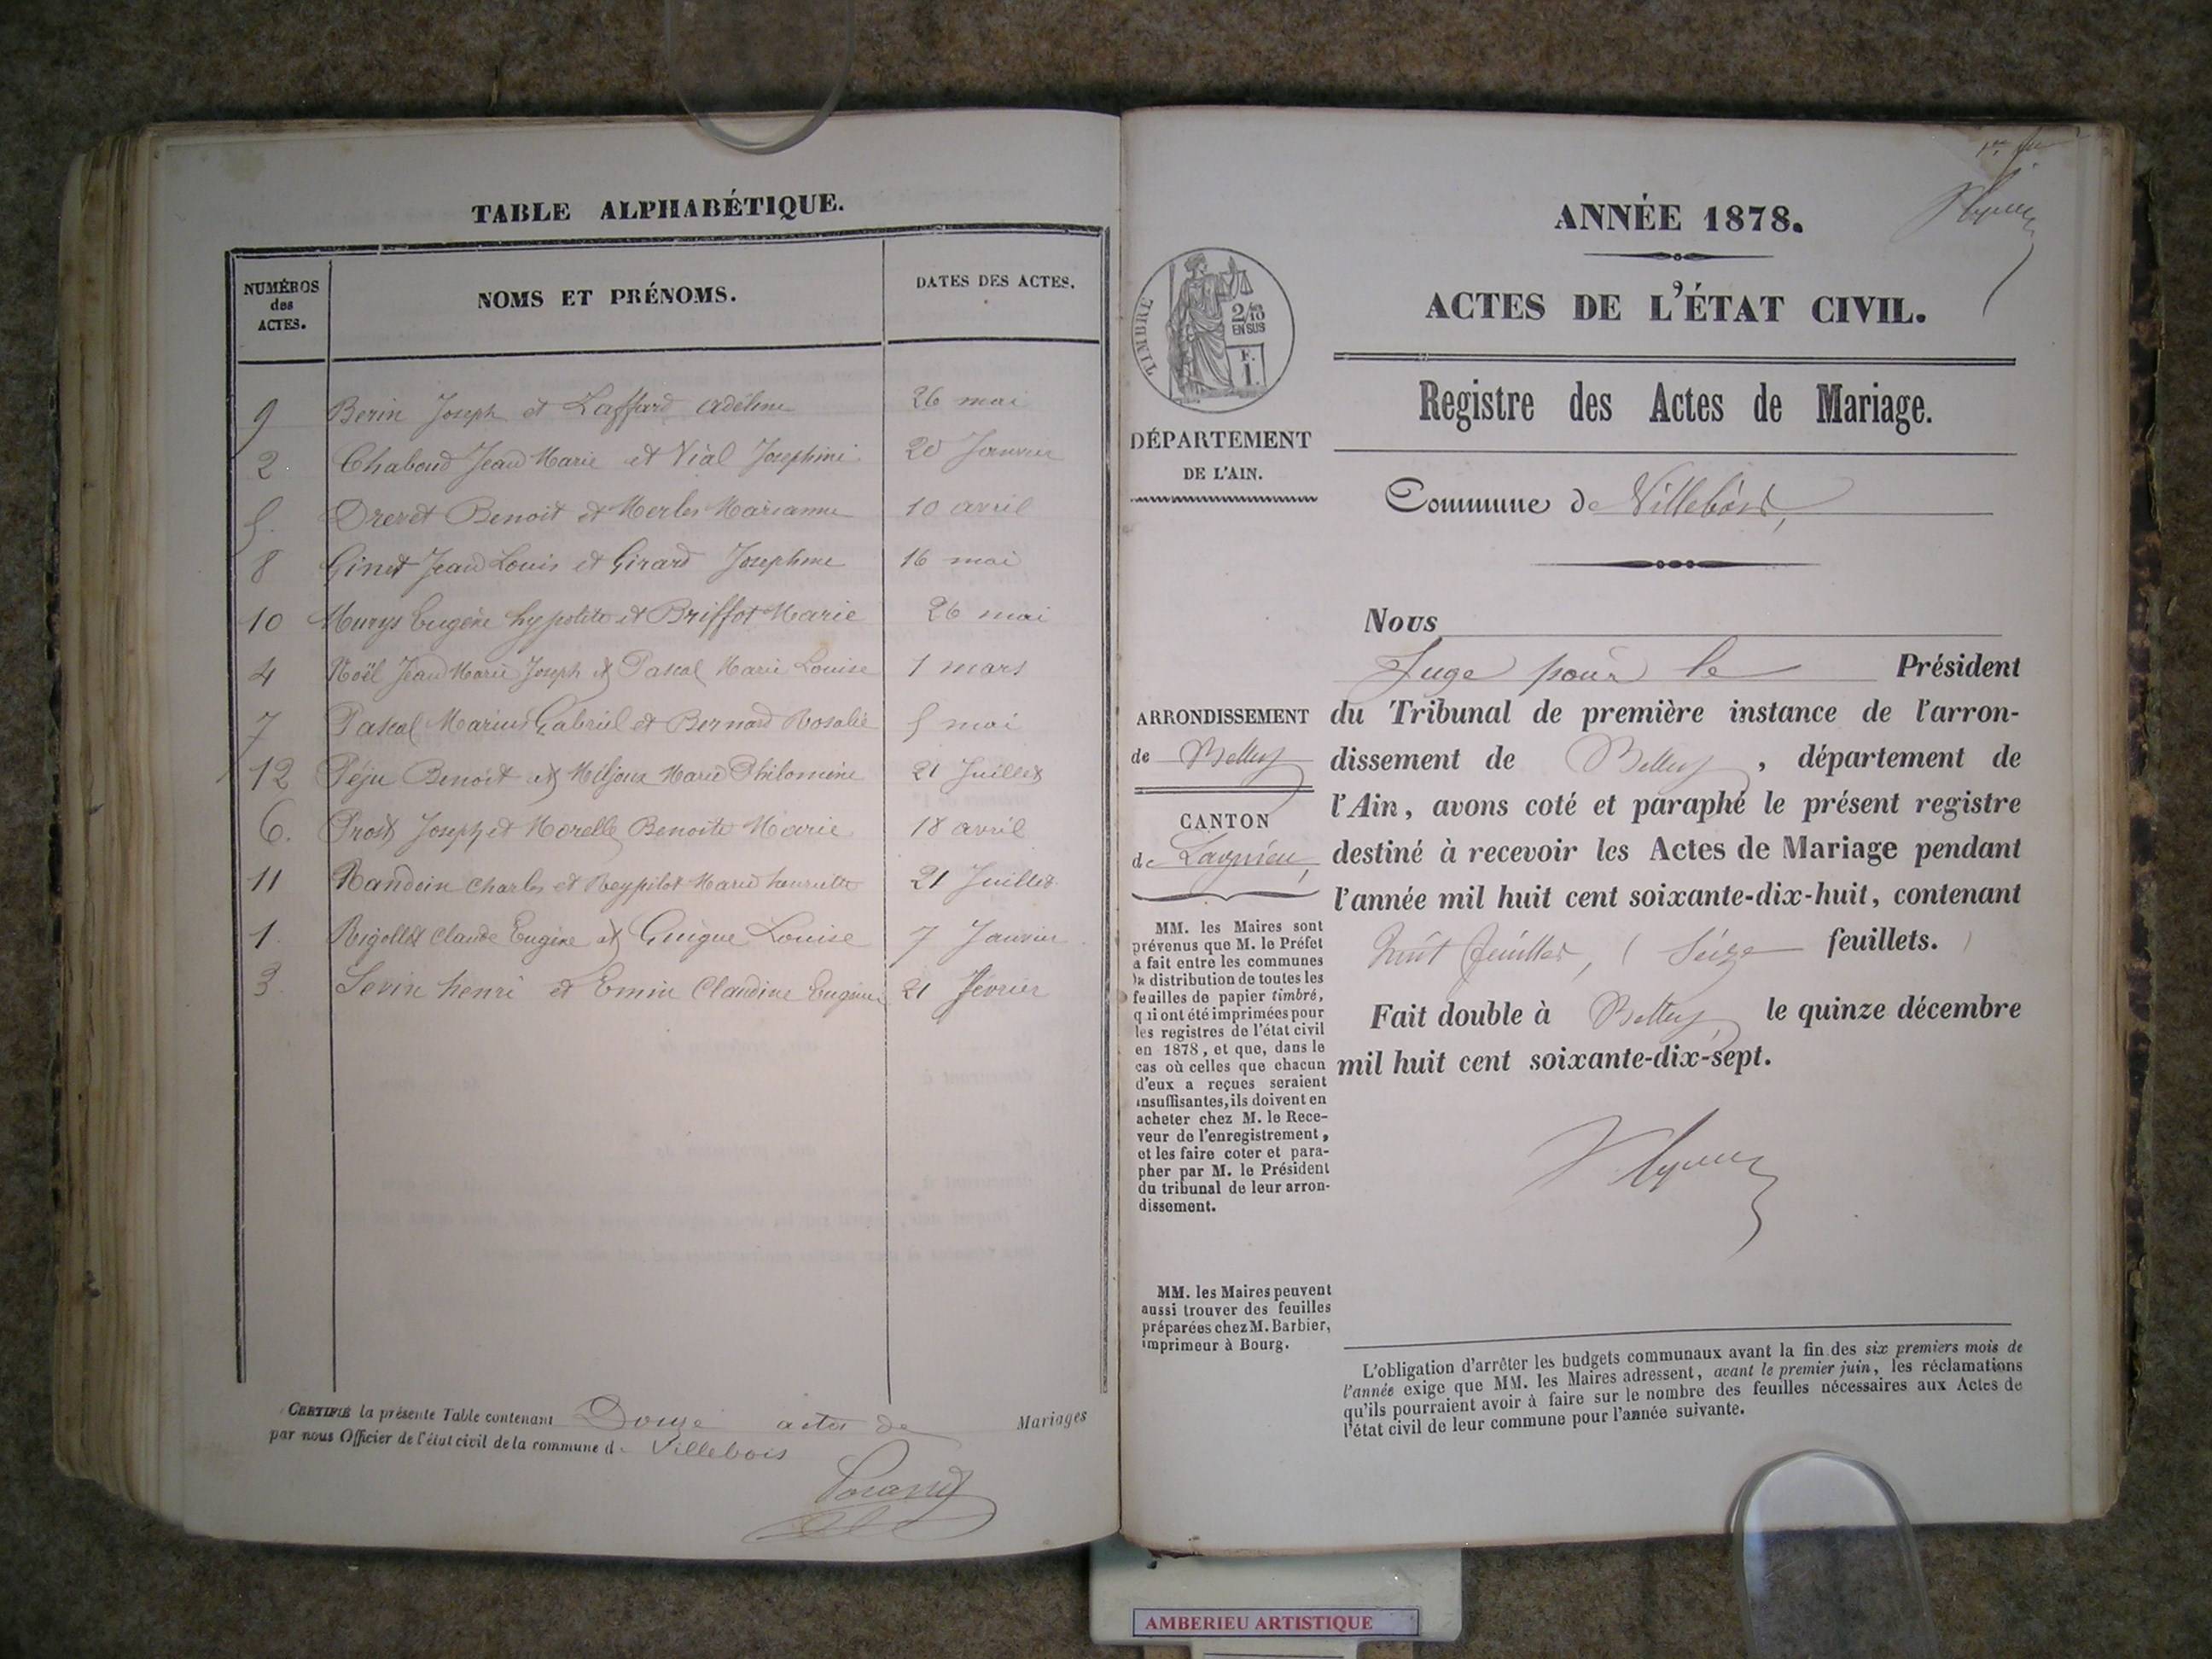 TABLE ALPHABÉTIQUE.
NUMÉROS des ACTES.
NOMS ET PRÉNOMS.
DATES DES ACTES.
9 Berin Joseph et Laffard Adéline 26 mai
2 Chaboud Jean Marie et Vial Josephine 20 Janvier
5. Drevet Benoit et Merles Marianne 10 avril
8 Ginet Jean Louis et Girard Josephine 16 mai
10 Murys Eugène hypolite et Briffot Marie 26 mai
4 Noël Jean Marie Joseph et Pascal Marie Louise 1 mars
7 Pascal Marius Gabriel et Bernard Rosalie 5 mai
12 Péju Benoit et Miljoux Marie Philomène 21 Juillet
6. Prost Joseph et Morelle Benoite Marie 18 avril
11 Randoin Charles et Reypilot Marie henriette 21 Juillet
1. Rigollet Claude Eugène et Guigue Louise 7 Janvier
3 Sevin henri et Emin Claudine Eugénie 21 février
CERTIFIÉ la présente Table contenant Douze actes de Mariages
par nous Officier de l'état civil de la commune de Villebois
ANNÉE 1878.
ACTES DE L'ÉTAT CIVIL.
TIMBRE
2/10
EN SUS
F.
1.
DÉPARTEMENT
DE L'AIN.
Registre des Actes de Mariage.
Commune de Villebois,
Nous
Juge pour le Président
du Tribunal de première instance de l'arron-
dissement de Belley, département de
l'Ain, avons coté et paraphé le présent registre
destiné à recevoir les Actes de Mariage pendant
l'année mil huit cent soixante-dix-huit, contenant
huit feuilles, (Seize feuillets.)
Fait double à Belley, le quinze décembre
mil huit cent soixante-dix-sept.
ARRONDISSEMENT
de Belley
CANTON
de Lagnieu,
MM. les Maires sont
prévenus que M. le Préfet
a fait entre les communes
la distribution de toutes les
feuilles de papier timbré,
qui ont été imprimées pour
les registres de l'état civil
en 1878, et que, dans le
cas où celles que chacun
d'eux a reçues seraient
insuffisantes, ils doivent en
acheter chez M. le Rece-
veur de l'enregistrement,
et les faire coter et para-
pher par M. le Président
du tribunal de leur arron-
dissement.
MM. les Maires peuvent
aussi trouver des feuilles
préparées chez M. Barbier,
imprimeur à Bourg.
L'obligation d'arrêter les budgets communaux avant la fin des six premiers mois de
l'année exige que MM. les Maires adressent, avant le premier juin, les réclamations
qu'ils pourraient avoir à faire sur le nombre des feuilles nécessaires aux Actes de
l'état civil de leur commune pour l'année suivante.
AMBERIEU ARTISTIQUE